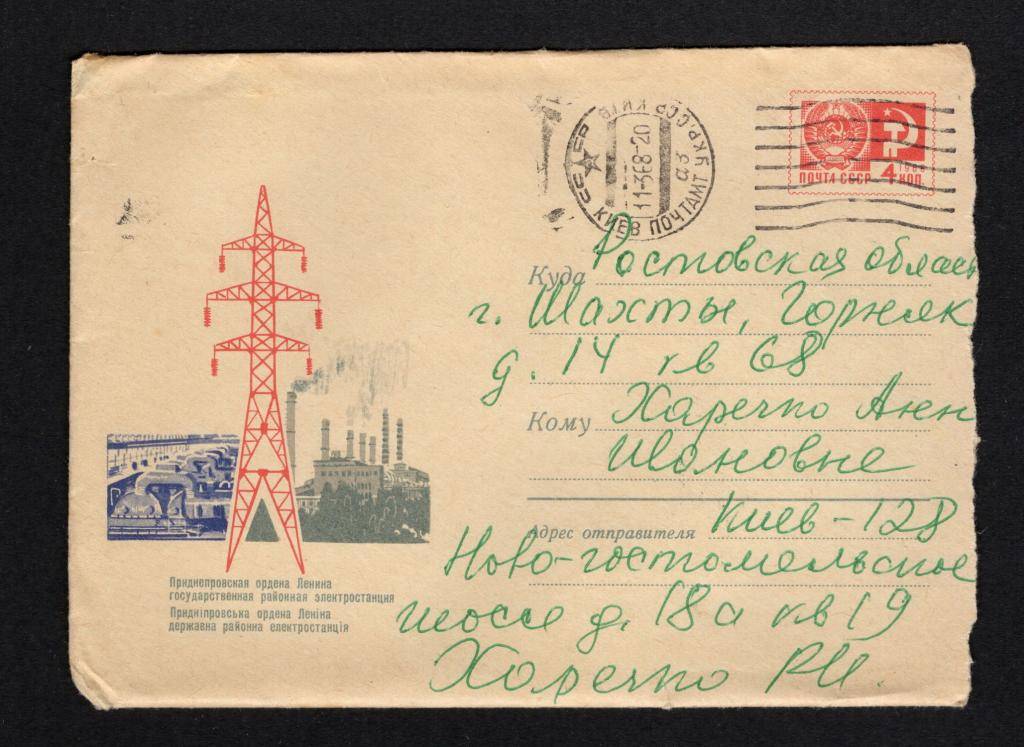 УКР.ССР КИЇВ
СССР
11-3 68-20
аз
КИЕВ ПОЧТАМТ
ПОЧТА СССР
4 КОП
1966
Куда Ростовская област
г. Шахты, Горняк
д. 14 кв 68
Кому Харечко Анн
Ивановне
Адрес отправителя Киев-128
Ново-гостомельское
шоссе д. 18а кв 19
Харечко РИ.
Приднепровская ордена Ленина
государственная районная электростанция
Придніпровська ордена Леніна
державна районна електростанція